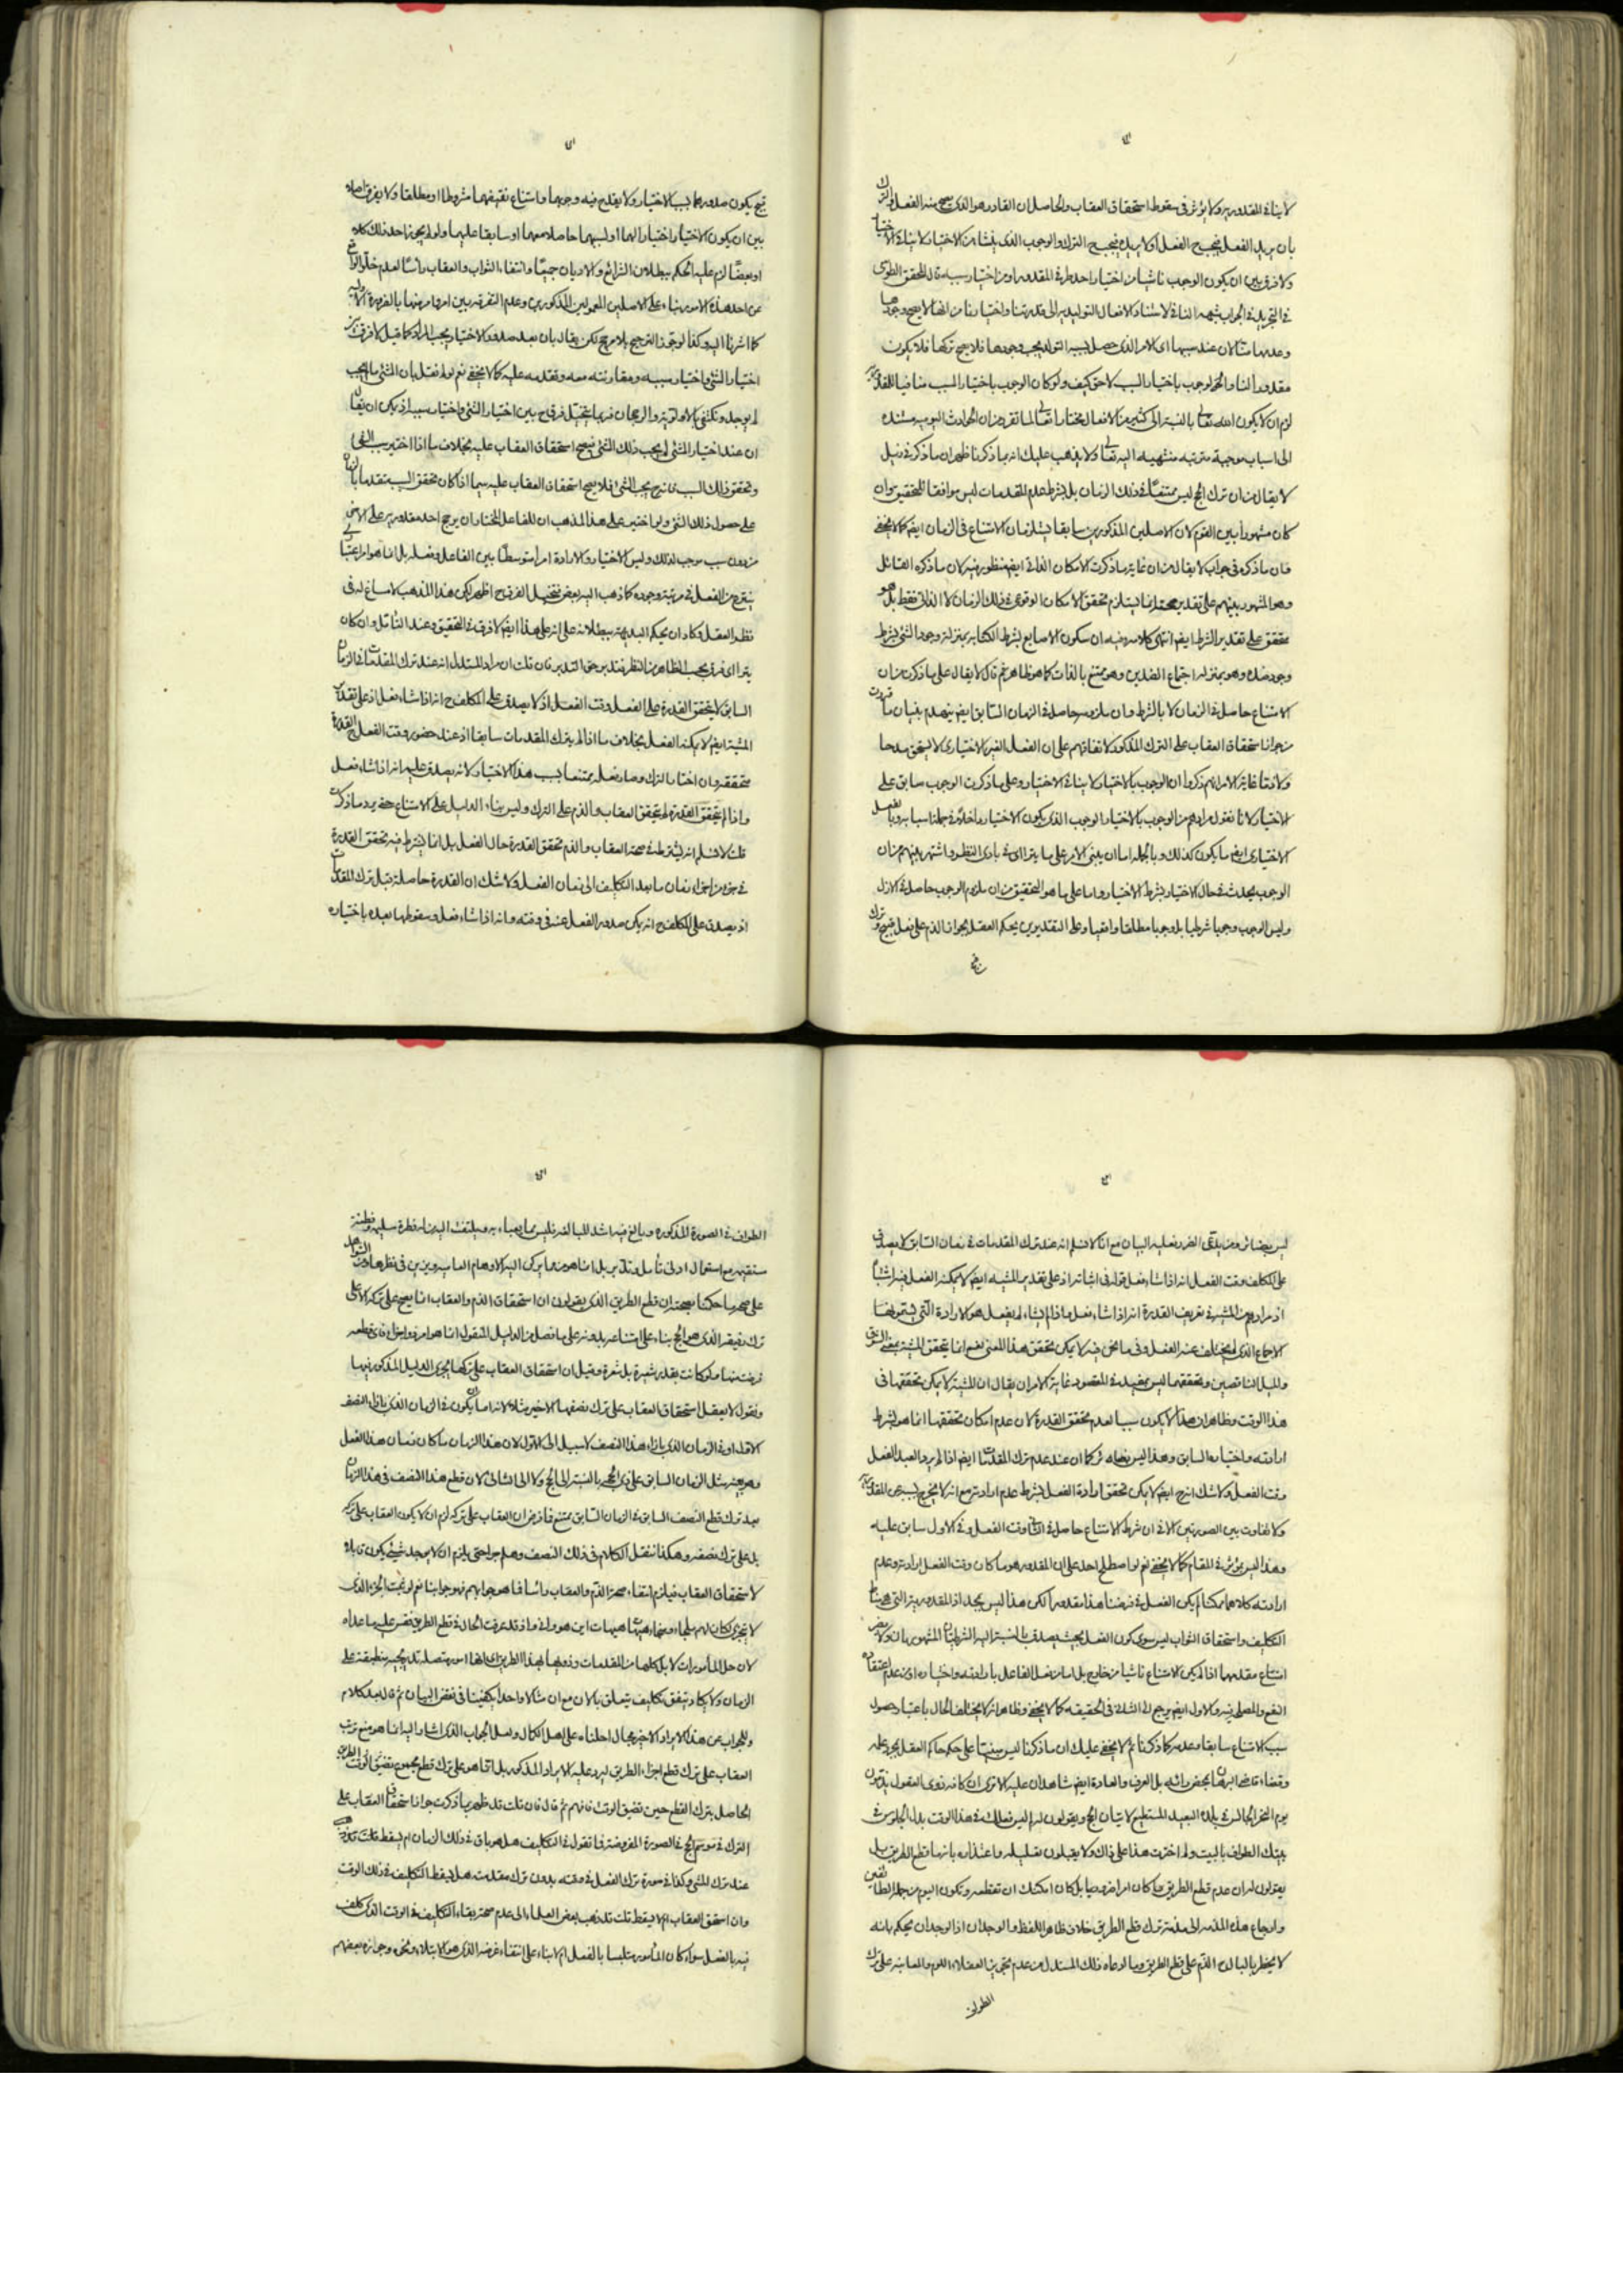 لا ينافي المقدورية ولا يؤثر في سقوط استحقاق العقاب والحاصل ان القادر هو الذي يصح منه الفعل والترك
بان يريد الفعل فيجب الفعل او لا يريده فيجب الترك والوجوب الذي ينشأ من الاختيار لا ينافي الاختيار
ولا فرق بين ان يكون الوجوب ناشيا من اختيار احد طرفي المقدور او من اختيار سببه قال المحقق الطوسي
في التجريد في الجواب شبهة النافي لاستناد الافعال التوليدية الى قدرتنا واختيارنا من انها لا يصح وجودها
وعدمها منا لان عند سببها اي الامر الذي حصل بسببه التولد يجب وجودها فلا يصح تركها فلا يكون
مقدورا لنا والوجوب باختيار السبب لاحق كيف ولو كان الوجوب باختيار السبب منافيا للقدرة
لزم ان لا يكون الله تعالى بالنسبة الى كثير من الافعال مختارا تعالى لما تقرر من ان الحوادث اليومية مستندة
الى اسباب موجبة مترتبة منتهية اليه تعالى ولا يذهب عليك انه بما ذكرنا ظهر ان ما ذكره في ذيل
لا يقال من ان ترك الحج ليس ممتنعا في ذلك الزمان بل بشرط عدم المقدمات ليس موافقا للتحقيق وان
كان مشهورا بين القوم لان الاصلين المذكورين سابقا يستلزمان الامتناع في الزمان ايضا كما لا يخفى
فان ما ذكره في جواب لا يقال من ان غاية ما ذكرت الامكان الذاتي ايضا منظور فيه لان ما ذكره القائل
وهو المشهور بينهم على تقدير صحته انما يستلزم تحقق الامكان الوقوعي في ذلك الزمان لا الذاتي فقط بل هو
متحقق على تقدير الشرط ايضا انتهى كلامه وفيه ان سكون الاصابع بشرط الكتابة بمنزلة وجود الشئ بشرط
وجود ضده وهو بمنزلة اجتماع الضدين وهو ممتنع بالذات كما هو ظاهر ثم قال لا يقال على ما ذكرت من ان
الامتناع حاصل في الزمان لا بالشرط وان ملزومه حاصل في الزمان السابق ايضا ينهدم بنيان ما قررت
من جواز استحقاق العقاب على الترك المذكور لاتفاقهم على ان الفعل الغير الاختياري لا يستحق مدحا
ولا ذما غاية الامر انهم ذكروا ان الوجوب بالاختيار لا ينافي الاختيار وعلى ما ذكرت الوجوب سابق على
الاختيار لانا نقول مرادهم من الوجوب بالاختيار الوجوب الذي يكون الاختيار داخلا في جملة اسبابه وبالفعل
الاختياري ايضا ما يكون كذلك وبالجملة اما ان يبنى الامر على ما يتراءى في بادي النظر واشتهر بينهم من ان
الوجوب يحدث في حال الاختيار وبشرط الاختيار واما على ما هو التحقيق من ان ملزوم الوجوب حاصل في الازل
وليس الوجوب وجوبا شرطيا بل وجوبا مطلقا واقعيا وعلى التقديرين يحكم العقل بجواز الذم على فعل قبيح وترك
يكون صدورهما بسبب الاختيار ولا يقدح فيه وجوبهما وامتناع نقيضهما مشروطا او مطلقا ولا يفرق اصلا
بين ان يكون الاختيار اختيارا لهما او لسببهما حاصلا معهما او سابقا عليهما ولو لم يجوز احد ذلك كلا
او بعضا لزم عليه الحكم ببطلان الشرائع والاديان جميعا وانتفاء الثواب والعقاب رأسا لعدم خلو الواقع
عن احد هذه الامور بناء على الاصلين المعولين المذكورين وعدم التفرقة بين امر وامر منها بالضرورة
كما اشرنا اليه وكذا لو جوز الترجيح بلا مرجح لكن يقال بان بعد صدور الاختيار يجب المراد كما قيل لا فرق بين
اختيار الشئ واختيار سببه ومقارنته معه وتقدمه عليه كما لا يخفى نعم لو لم نقل بان الشئ ما لم يجب
لم يوجد ونكتفي بالاولوية والرجحان فربما يتخيل فرق ح بين اختيار الشئ واختيار سببه اذ يمكن ان يقال
ان عند اختيار الشئ لم يجب ذلك الشئ فيصح استحقاق العقاب عليه بخلاف ما اذا اختير سبب الشئ
وتحقق ذلك السبب فانه ح يجب الشئ فلا يصح استحقاق العقاب عليه سيما اذا كان تحقق السبب متقدما بالزمان
على حصول ذلك الشئ ولو اختير على هذا المذهب ان للفاعل المختار ان يرجح احد مقدوريه على الاخر
من دون سبب موجب لذلك وليس الاختيار والارادة امرا متوسطا بين الفاعل وفعله بل انما هو امر اعتباري
ينتزع من الفعل في مرتبة وجوده كما ذهب اليه بعض فتخيل الفرق ح اظهر لكن هذا المذهب لا مساغ له في
نظر العقل وكاد ان يحكم البديهة ببطلانه على انه على هذا ايضا لا فرق في التحقيق وعند التأمل وان كان
يتراءى فرق بحسب الظاهر من النظر فتدبر حق التدبر فان قلت ان مراد المستدل انه عند ترك المقدمات في الزمان
السابق لا يتحقق القدرة على الفعل وقت الفعل اذ لا يصدق على المكلف ح انه اذا شاء فعل اذ على تقدير
المشية ايضا لا يمكنه الفعل بخلاف ما اذا لم يترك المقدمات سابقا اذ عند حضور وقت الفعل القدرة
متحققة وان اختار الترك وصار فعله ممتنعا بسبب هذا الاختيار لانه يصدق عليه انه اذا شاء فعل
واذا لم يتحقق القدرة لم يتحقق العقاب والذم على الترك وليس بناء الدليل على الامتناع حتى يرد ما ذكرت
قلت لا نسلم انه يشترط في صحة العقاب والذم تحقق القدرة حال الفعل بل انما يشترط فيه تحقق القدرة
في جزء من اجزاء زمان ما بعد التكليف الى زمان الفعل ولا شك ان القدرة حاصلة قبل ترك المقدمات
اذ يصدق على المكلف ح انه يمكن صدور الفعل عنه في وقته وانه اذا شاء فعل وسقوطها بعده باختياره
ليس بضائر ومن يدعي الضرر فعليه البيان مع انا لا نسلم انه عند ترك المقدمات في زمان السابق لا يصدق
على المكلف وقت الفعل انه اذا شاء فعل قوله في اثباته اذ على تقدير المشية ايضا لا يمكنه الفعل
اذ مرادهم من المشية في تعريف القدرة انه اذا شاء فعل واذا لم يشاء لم يفعل هو الارادة التي يسمونها
الاجماع الذي لا يتخلف عنه الفعل وفي ما نحن فيه لا يمكن تحقق هذا المعنى نعم انما يتحقق المشية بمعنى الشوق
والميل الناقصين وتحققهما ليس بمفيد في المقصود غاية الامر ان يقال ان المشية لا يمكن تحققها في
هذا الوقت وظاهر ان هذا لا يكون سببا لعدم تحقق القدرة لان عدم امكان تحققها انما هو بشرط
ارادته واختياره السابق وهذا ليس بضائر كما ان عند عدم ترك المقدمات ايضا اذا لم يرد العبد الفعل
وقت الفعل ولا شك انه ح ايضا لا يمكن تحقق ارادة الفعل بشرط عدم ارادته مع انه لا يخرج بسببه عن المقدورية
ولا تفاوت بين الصورتين الا في ان شرط الامتناع حاصل في الثاني وقت الفعل وفي الاول سابق عليه
وهذا ليس بمؤثر في المقام كما لا يخفى نعم لو اصطلح احد على ان المقدور هو ما كان وقت الفعل ارادته وعدم
ارادته كلاهما ممكنا لم يكن الفعل في فرضنا هذا مقدورا لكن هذا ليس بجيد اذ المقدورية التي هي مناط
التكليف واستحقاق الثواب ليس سوى كون الفعل بحيث يصدق بالنسبة اليه الشرطيتان المشهورتان ولا يضر
امتناع مقدمهما اذا لم يكن الامتناع ناشيا من خارج بل اما من فعل الفاعل بارادته واختياره او من عدم اعتقاده
النفع والمصلحة فيه والاول ايضا يرجع الى الثاني في الحقيقة كما لا يخفى وظاهر انه لا يختلف الحال باعتبار حصول
سبب الامتناع سابقا وعدمه كما ذكرنا ثم لا يخفى عليك ان ما ذكرنا ليس مبنيا على حكم حاكم العقل بمجرد عدله
وقضاء قاضي البرهان بمحض رائه بل العرف والعادة ايضا شاهدان عليه الا ترى ان كافة ذوي العقول يذمون
يوم النحر الجالس في بلده البعيد المستطيع لاتيان الحج ويقولون له لم ليس فعلك في هذا الوقت بدل الجلوس في
بيتك الطواف بالبيت ولم اخترت هذا على ذاك ولا يقبلون تعليله واعتذاره بانه ما قطع الطريق بل
يقولون له ان عدم قطع الطريق ما كان امرا ضروريا بل كان امكنك ان تقطعه وتكون اليوم من جملة الطائفين
وارجاع هذه المذمة الى مذمة ترك قطع الطريق خلاف ظاهر اللفظ والوجدان اذ الوجدان يحكم بانه
لا يخطر بالبال ح الذم على قطع الطريق وما ادعاه ذلك المستدل من عدم تجويز العقلاء اللوم والمعاتبة على ترك
الطواف
الطواف في الصورة المذكورة وبالغ فيه اشد المبالغة فليس مما يعباء به ويلتفت اليه من له فطرة سليمة وفطنة
مستقيمة مع استعمال ادنى تأمل وتدبر بل انما هو مما يركن اليه الاوهام العامية ويزين في نظرها ومن الشواهد
على صحة ما حكمنا بصحته ان قطع الطريق الذي يقولون ان استحقاق الذم والعقاب انما يصح على تركه لا على
ترك ذيقه الذي هو الحج بناء على امتناعه بدونه على ما فصل من الدليل المنقول انما هو امر ذو اجزاء فاي قطعة
فرضت منها ولو كانت بقدر شبر بل شعرة وقيل ان استحقاق العقاب على تركها يجري الدليل المذكور فيها
ونقول لا يعقل استحقاق العقاب على ترك نصفها الاخير مثلا لانه اما يكون في الزمان الذي بازاء النصف
الاول او في الزمان الذي بازاء هذا النصف لا سبيل الى الاول لان هذا الزمان ما كان زمان هذا الفعل
وهو بعينه مثل الزمان السابق على ذي الحجة بالنسبة الى الحج ولا الى الثاني لان قطع هذا النصف في هذا الزمان
بعد ترك قطع النصف السابق في الزمان السابق ممتنع فاذن ان العقاب على تركه لزم ان لا يكون العقاب على تركه
بل على ترك نصفه وهكذا ننقل الكلام في ذلك النصف وهلم جرا حتى يلزم ان لا يوجد شيئ يكون قابلا
لاستحقاق العقاب فيلزم انتفاء صحة الذم والعقاب رأسا فما هو جوابهم فهو جوابنا نعم لو ثبت الجزء الذي
لا يتجزى لكان لهم ملجاء ومنجاء هيهات هيهات اين هو واذ قد عرفت الحال في قطع الطريق فقس عليه ما عداه
لان جل المأمورات لا بل كلها من المقدمات وذويها لهذا الطريق لانها امور متصلة تدريجية منطبقة على
الزمان ولا يكاد يتفق تكليف يتعلق بالان مع ان مثالا واحدا يكفينا في نقض البيان ثم قال بعد كلام
والجواب عن هذا الايراد الاخير مجال احلناه على اهل الكمال ولعل الجواب الذي اشار اليه انما هو منع ترتب
العقاب على ترك قطع اجزاء الطريق ليرد عليه الايراد المذكور بل انما هو على ترك قطع مجموع الطريق
الحاصل بترك القطع حين تضيق الوقت فافهم ثم قال فان قلت قد ظهر بما ذكرت جواز استحقاق العقاب على
الترك في موسم الحج في الصورة المفروضة فما تقول في التكليف هل هو باق في ذلك الزمان ام يسقط
عند ترك الشئ وكذا في صورة ترك الفعل في وقته بدون ترك مقدمته هل يسقط التكليف في ذلك الوقت
وان استحق العقاب ام لا يسقط قلت قد ذهب بعض العلماء الى عدم صحة بقاء التكليف في الوقت الذي كلف
فيه بالفعل سواء كان المأمور متلبسا بالفعل ام لا بناء على انتفاء غرضه الذي هو الابتلاء ونحوه وجوزه بعضهم